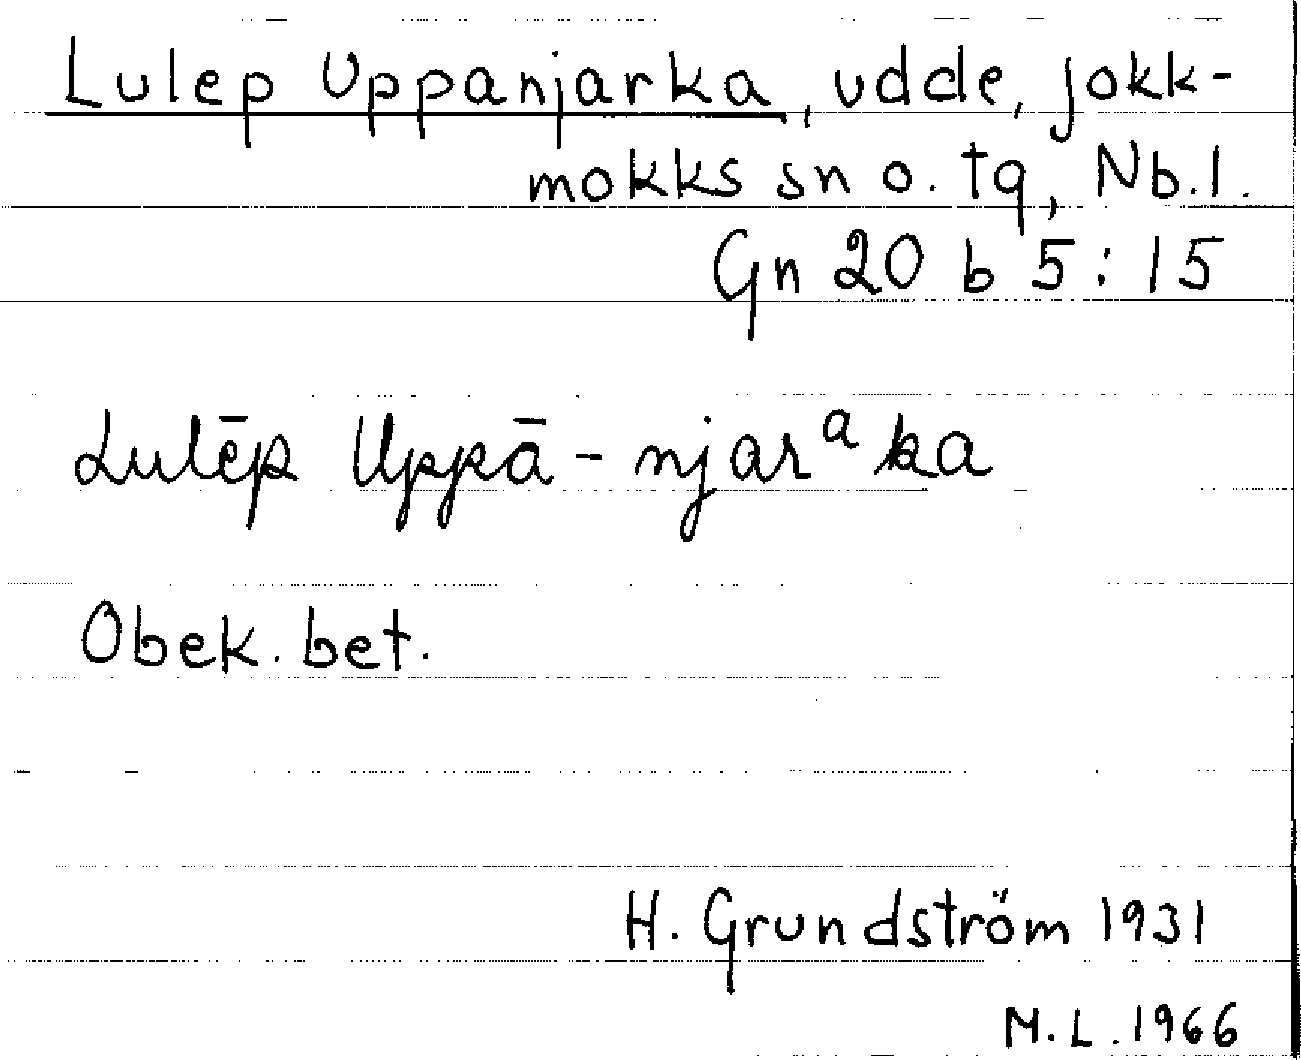 Lulep Uppanjarka, udde, Jokk-
mokks sn o. tg, Nb.l.
Gn 20 b 5:15
Lulēp Uppā-njarᵃka
Obek. bet.
H. Grundström 1931
M.L. 1966